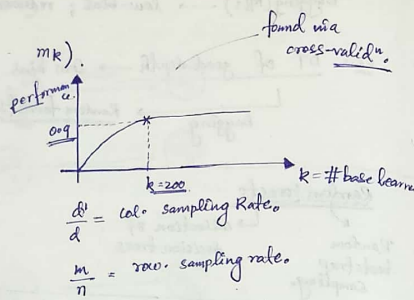 found via
cross-validⁿ.
mk).
performance.
0.9
k=200
k = # base learne
d'/d = col. sampling Rate.
m/n = row. sampling rate.